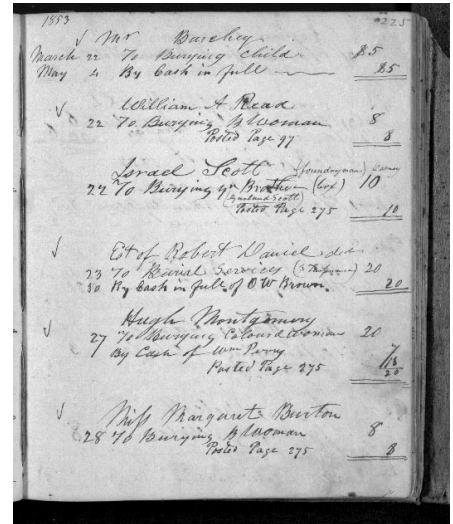 1853 225
Mr Barckley
March 22 To Burying Child $5
May 4 By Cash in full $5
William A Read
22 To Burying B Woman 8
Posted Page 97 8
Israel Scott (foundryman)
22 To Burying yr Brother (box) 10
(Garland Scott)
Posted Page 275 10
Est of Robert Daniel decd
23 To Burial Services 20
30 By Cash in full of O W Brown. 20
Hugh Montgomery
27 To Burying Coloured woman 20
By Cash of Wm Perry 7
Posted Page 275 13
20
Miss Margaret Burton
28 To Burying B Woman 8
Posted Page 275 8